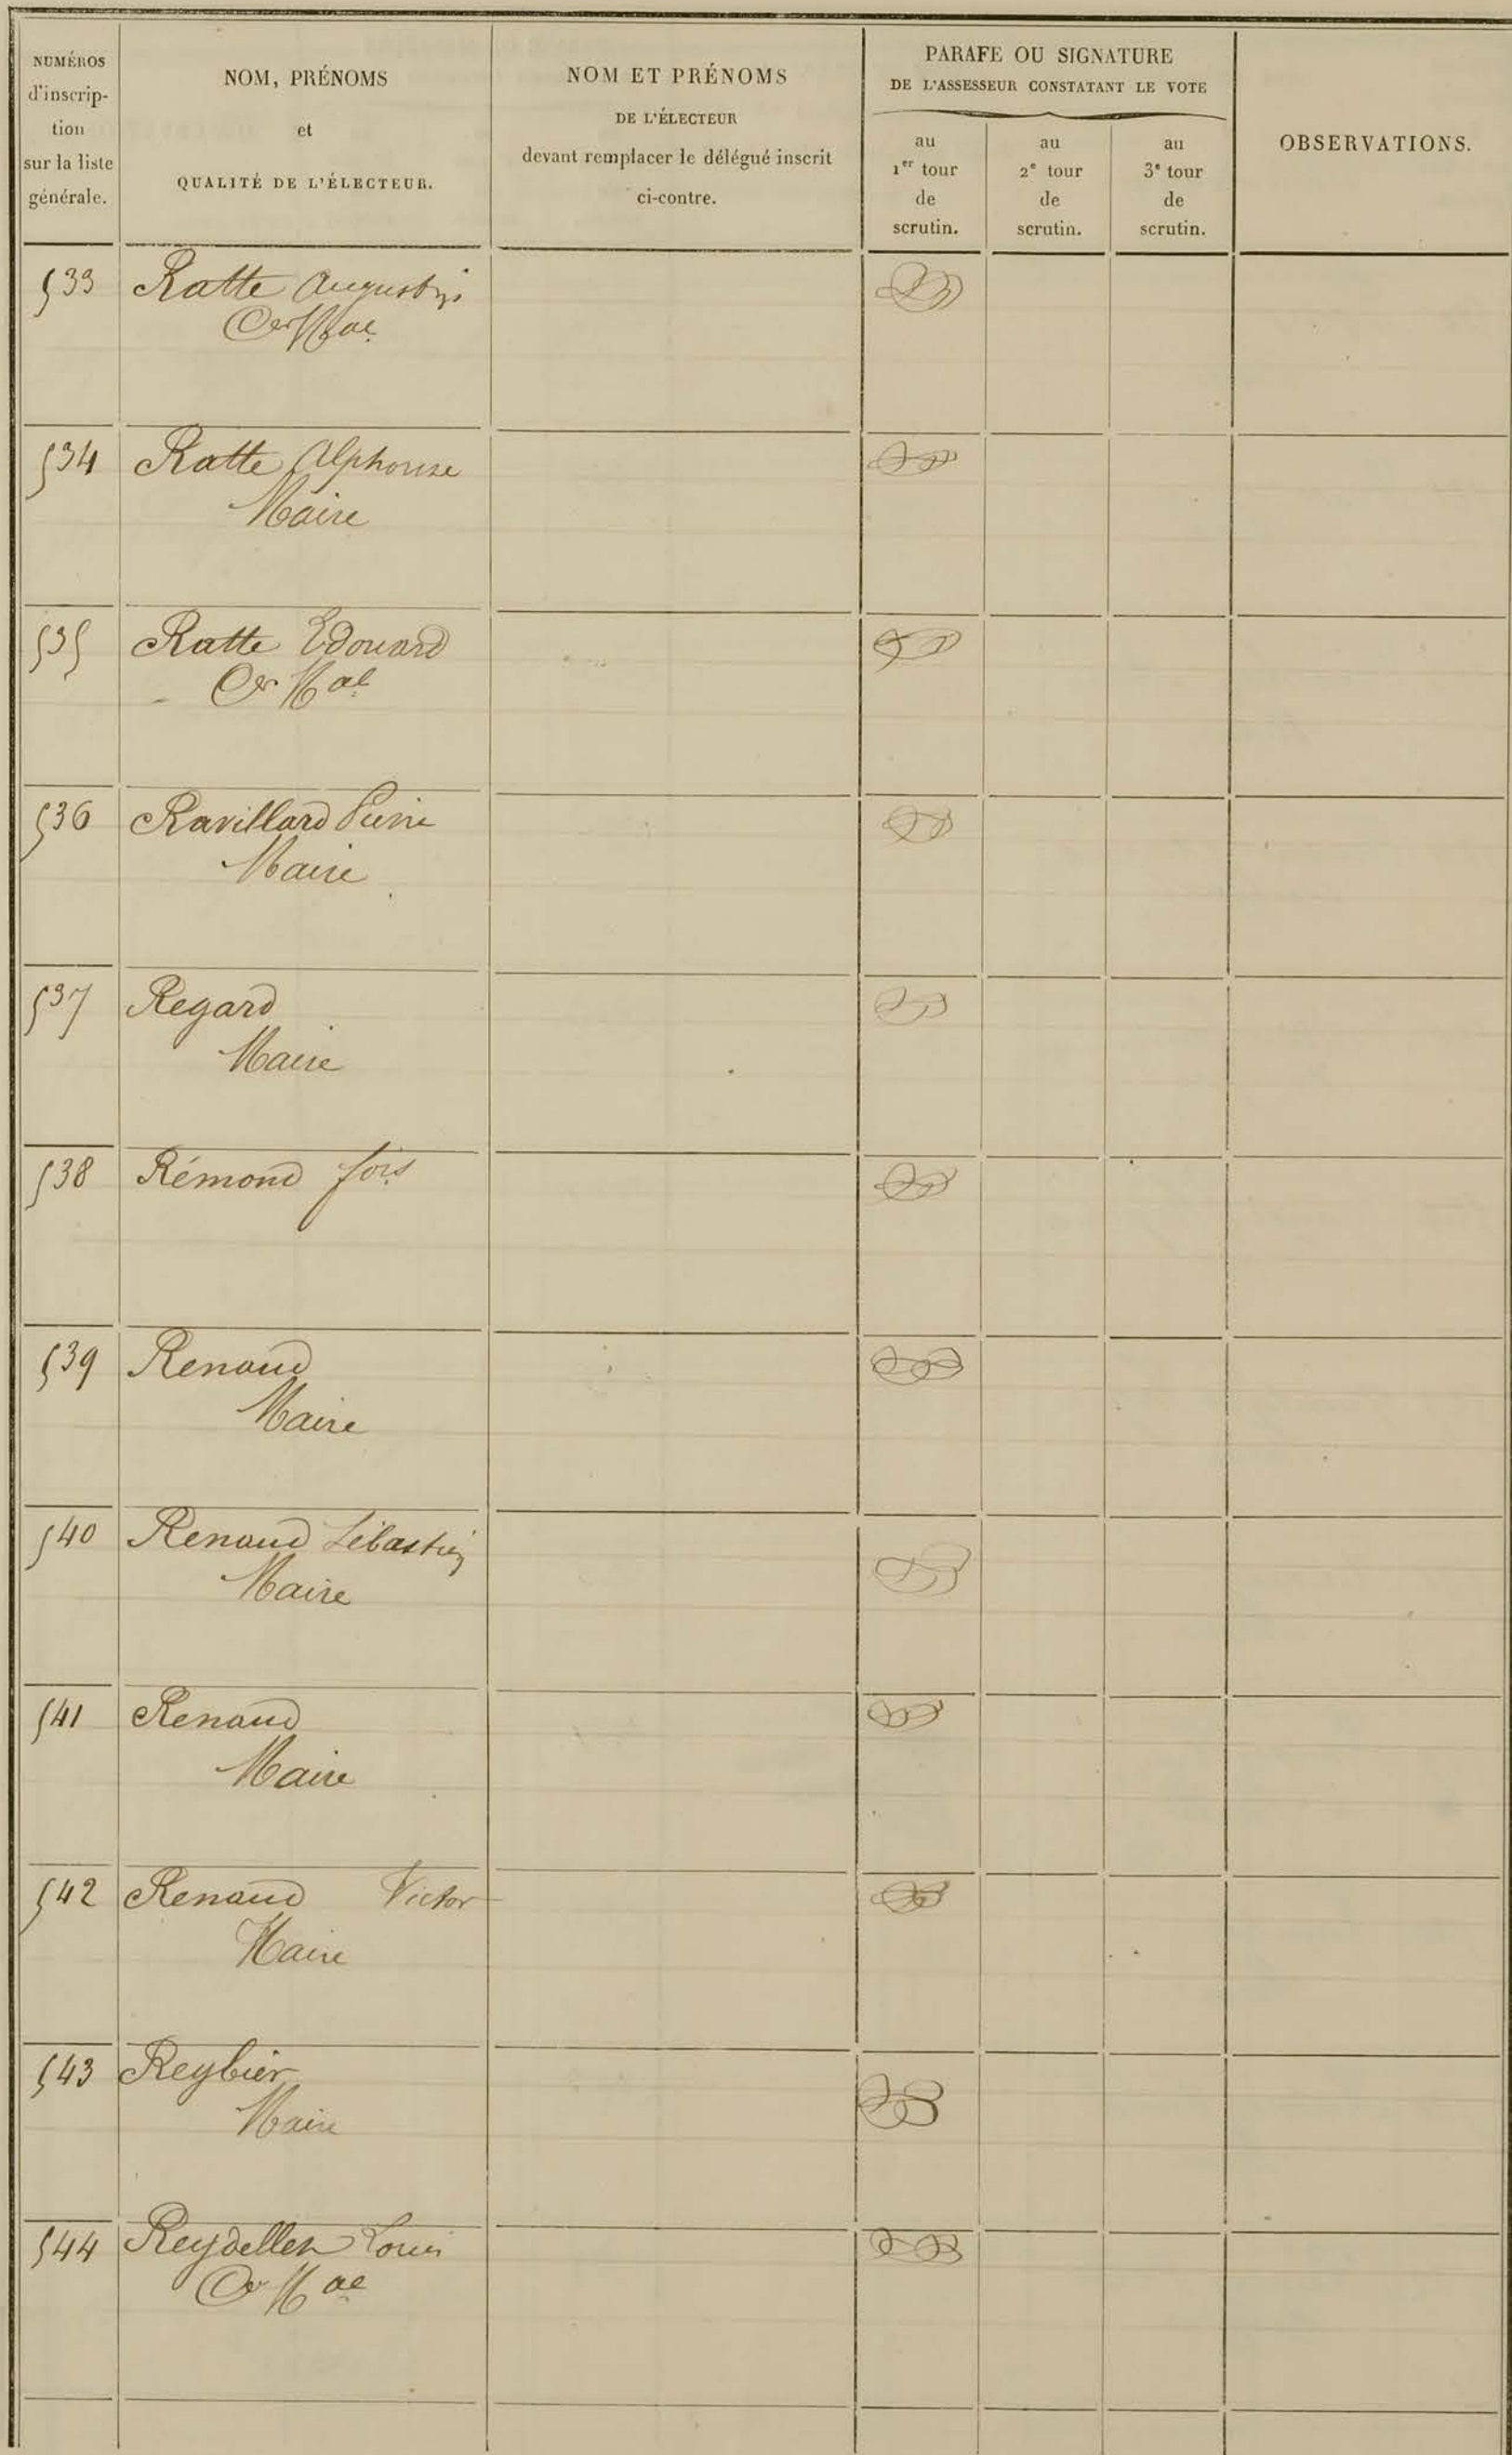 NUMÉROS
d'inscrip-
tion
sur la liste
générale.
NOM, PRÉNOMS
et
QUALITÉ DE L'ÉLECTEUR.
NOM ET PRÉNOMS
DE L'ÉLECTEUR
devant remplacer le délégué inscrit
ci-contre.
PARAFE OU SIGNATURE
DE L'ASSESSEUR CONSTATANT LE VOTE
au
1er tour
de
scrutin.
au
2e tour
de
scrutin.
au
3e tour
de
scrutin.
OBSERVATIONS.
533 Ratte Augustin
Cer Mal
534 Ratte Alphonse
Maire
535 Ratte Edouard
Cer Mal
536 Ravillard Pierre
Maire
537 Regard
Maire
538 Rémond fois
539 Renaud
Maire
540 Renaud Sébastien
Maire
541 Renaud
Maire
542 Renaud Victor
Maire
543 Reybier
Maire
544 Reydellet Louis
Cer Mal